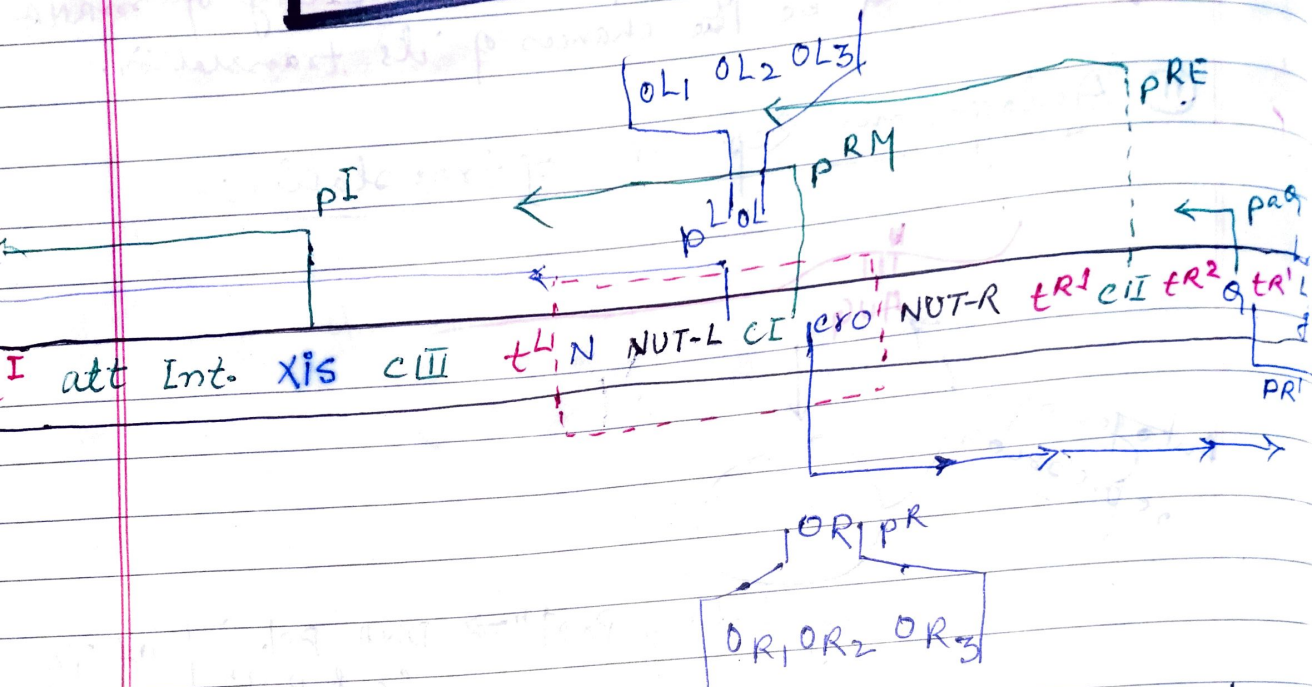 OL1 OL2 OL3
pRE
pRM
pI
pL OL
paQ
I att Int. Xis cIII tL1 N NUT-L CI cro NUT-R tR1 CII tR2 Q tR'
PR'
OR pR
OR1 OR2 OR3